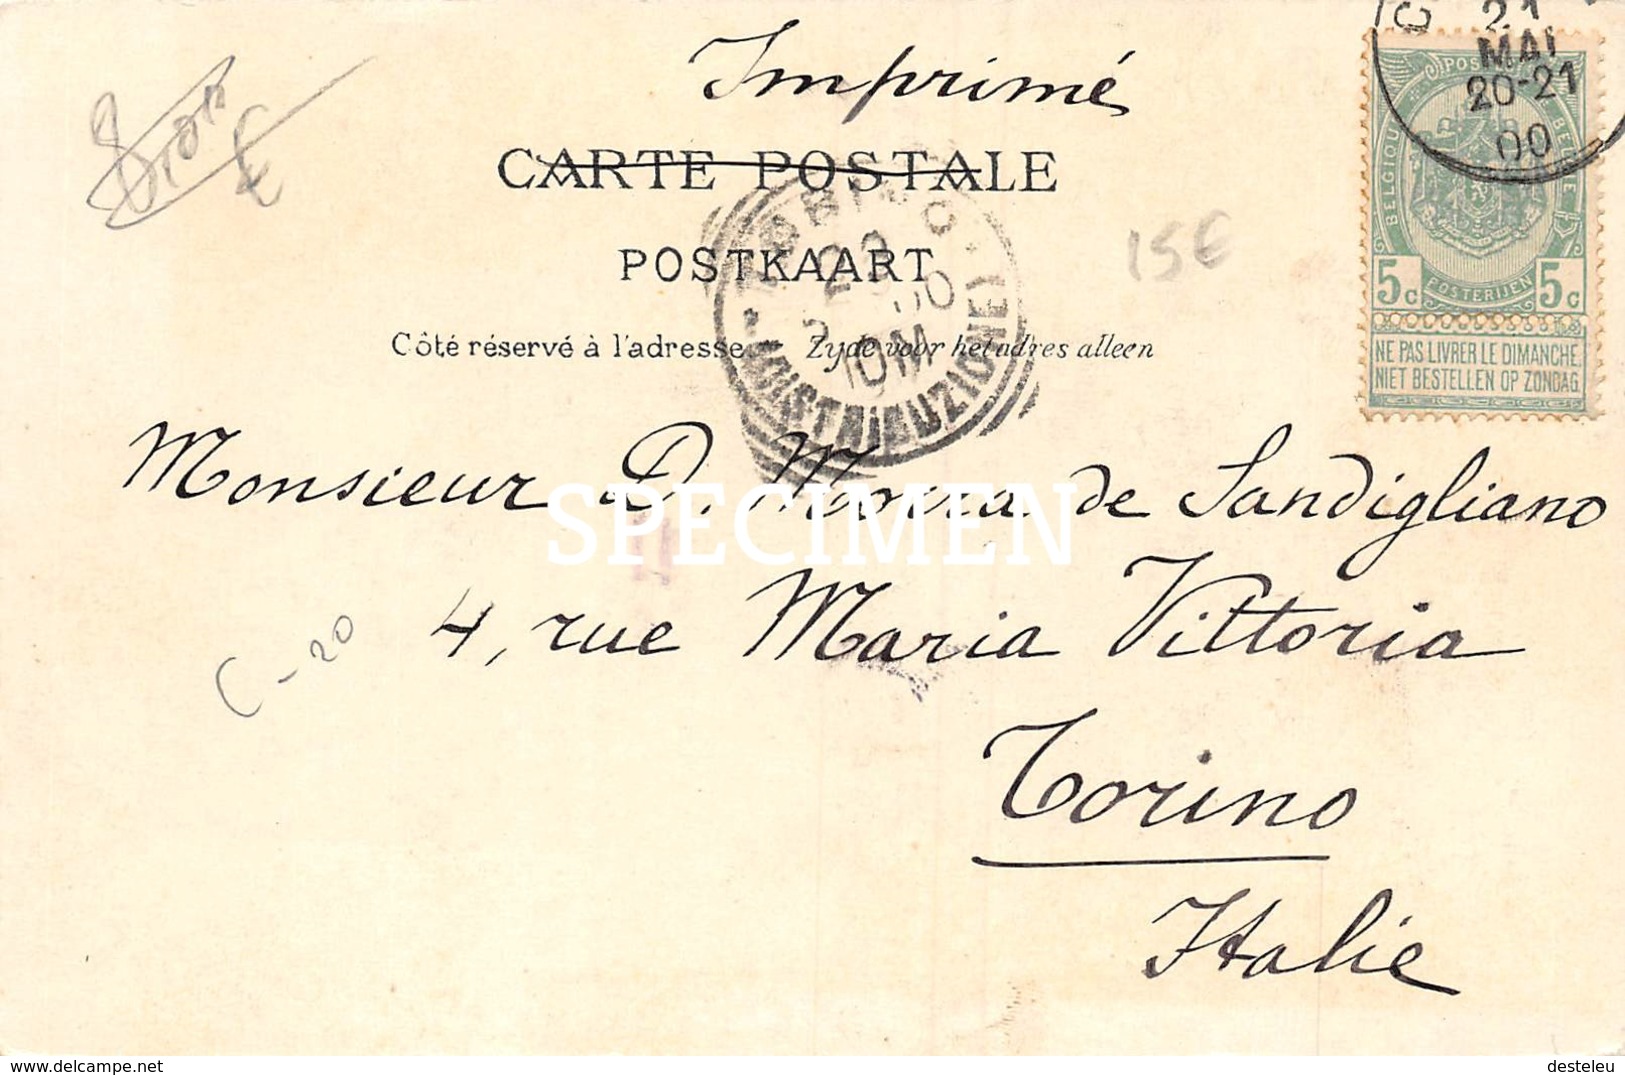 Imprimé
21
MAI
20-21
00
CARTE POSTALE
POSTKAART
Côté réservé à l'adresse Zyde voor het adres alleen
15€
BELGIQUE
BELGIË
POSTERIJEN
5c 5c
NE PAS LIVRER LE DIMANCHE
NIET BESTELLEN OP ZONDAG
TORINO
10M
Monsieur D. Morra de Sandigliano
SPECIMEN
4, rue Maria Vittoria
C-20
Torino
Italie
delcampe.net
desteleu